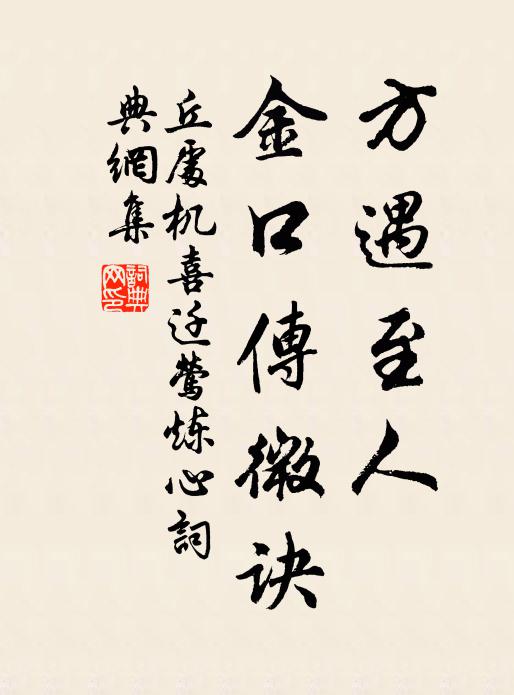 方遇至人
金口傳微诀
丘處机喜迁莺炼心詞
典網集
詞典网印